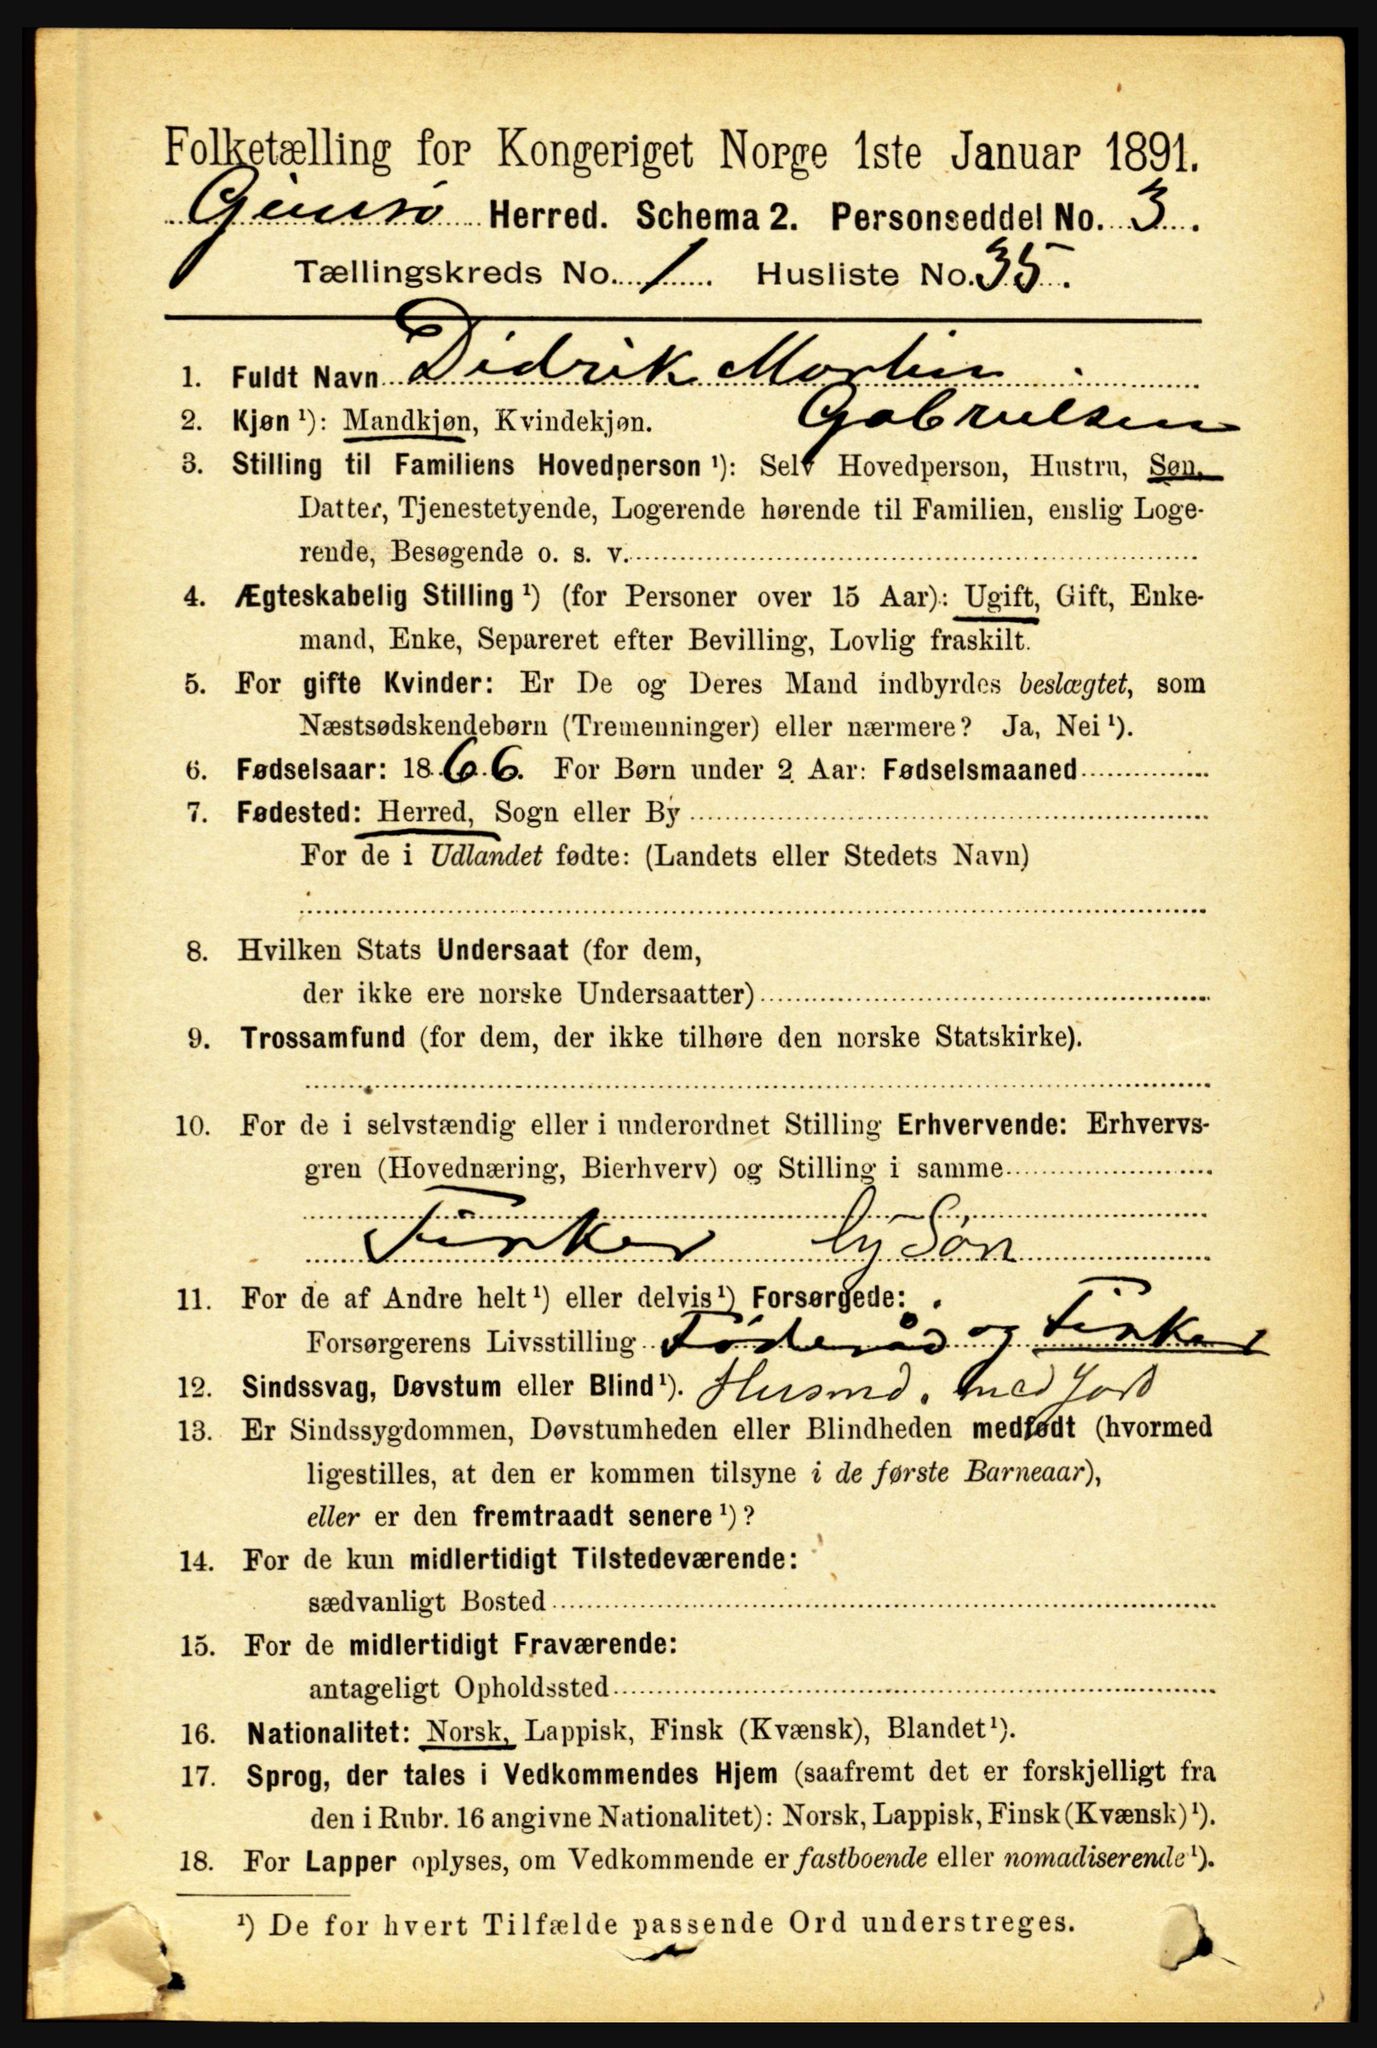 Folketælling for Kongeriget Norge 1ste Januar 1891.
Gimsø Herred. Schema 2. Personseddel No. 3.
Tællingskreds No. 1. Husliste No. 35.
1. Fuldt Navn Didrik Martin
Gabrielsen
2. Kjøn ¹): Mandkjøn, Kvindekjøn.
3. Stilling til Familiens Hovedperson ¹): Selv Hovedperson, Hustru, Søn,
Datter, Tjenestetyende, Logerende hørende til Familien, enslig Loge-
rende, Besøgende o. s. v.
4. Ægteskabelig Stilling ¹) (for Personer over 15 Aar): Ugift, Gift, Enke-
mand, Enke, Separeret efter Bevilling, Lovlig fraskilt.
5. For gifte Kvinder: Er De og Deres Mand indbyrdes beslægtet, som
Næstsødskendebørn (Tremenninger) eller nærmere? Ja, Nei ¹).
6. Fødselsaar: 1866. For Børn under 2 Aar: Fødselsmaaned
7. Fødested: Herred, Sogn eller By
For de i Udlandet fødte: (Landets eller Stedets Navn)
8. Hvilken Stats Undersaat (for dem,
der ikke ere norske Undersaatter)
9. Trossamfund (for dem, der ikke tilhøre den norske Statskirke).
10. For de i selvstændig eller i underordnet Stilling Erhvervende: Erhvervs-
gren (Hovednæring, Bierhverv) og Stilling i samme
Fisker Søn
11. For de af Andre helt ¹) eller delvis ¹) Forsørgede:
Forsørgerens Livsstilling Føderåd og Fisker
12. Sindssvag, Døvstum eller Blind ¹). Husmd. med Jord
13. Er Sindssygdommen, Døvstumheden eller Blindheden medfødt (hvormed
ligestilles, at den er kommen tilsyne i de første Barneaar),
eller er den fremtraadt senere ¹)?
14. For de kun midlertidigt Tilstedeværende:
sædvanligt Bosted
15. For de midlertidigt Fraværende:
antageligt Opholdssted
16. Nationalitet: Norsk, Lappisk, Finsk (Kvænsk), Blandet ¹).
17. Sprog, der tales i Vedkommendes Hjem (saafremt det er forskjelligt fra
den i Rubr. 16 angivne Nationalitet): Norsk, Lappisk, Finsk (Kvænsk) ¹).
18. For Lapper oplyses, om Vedkommende er fastboende eller nomadiserende ¹).
¹) De for hvert Tilfælde passende Ord understreges.